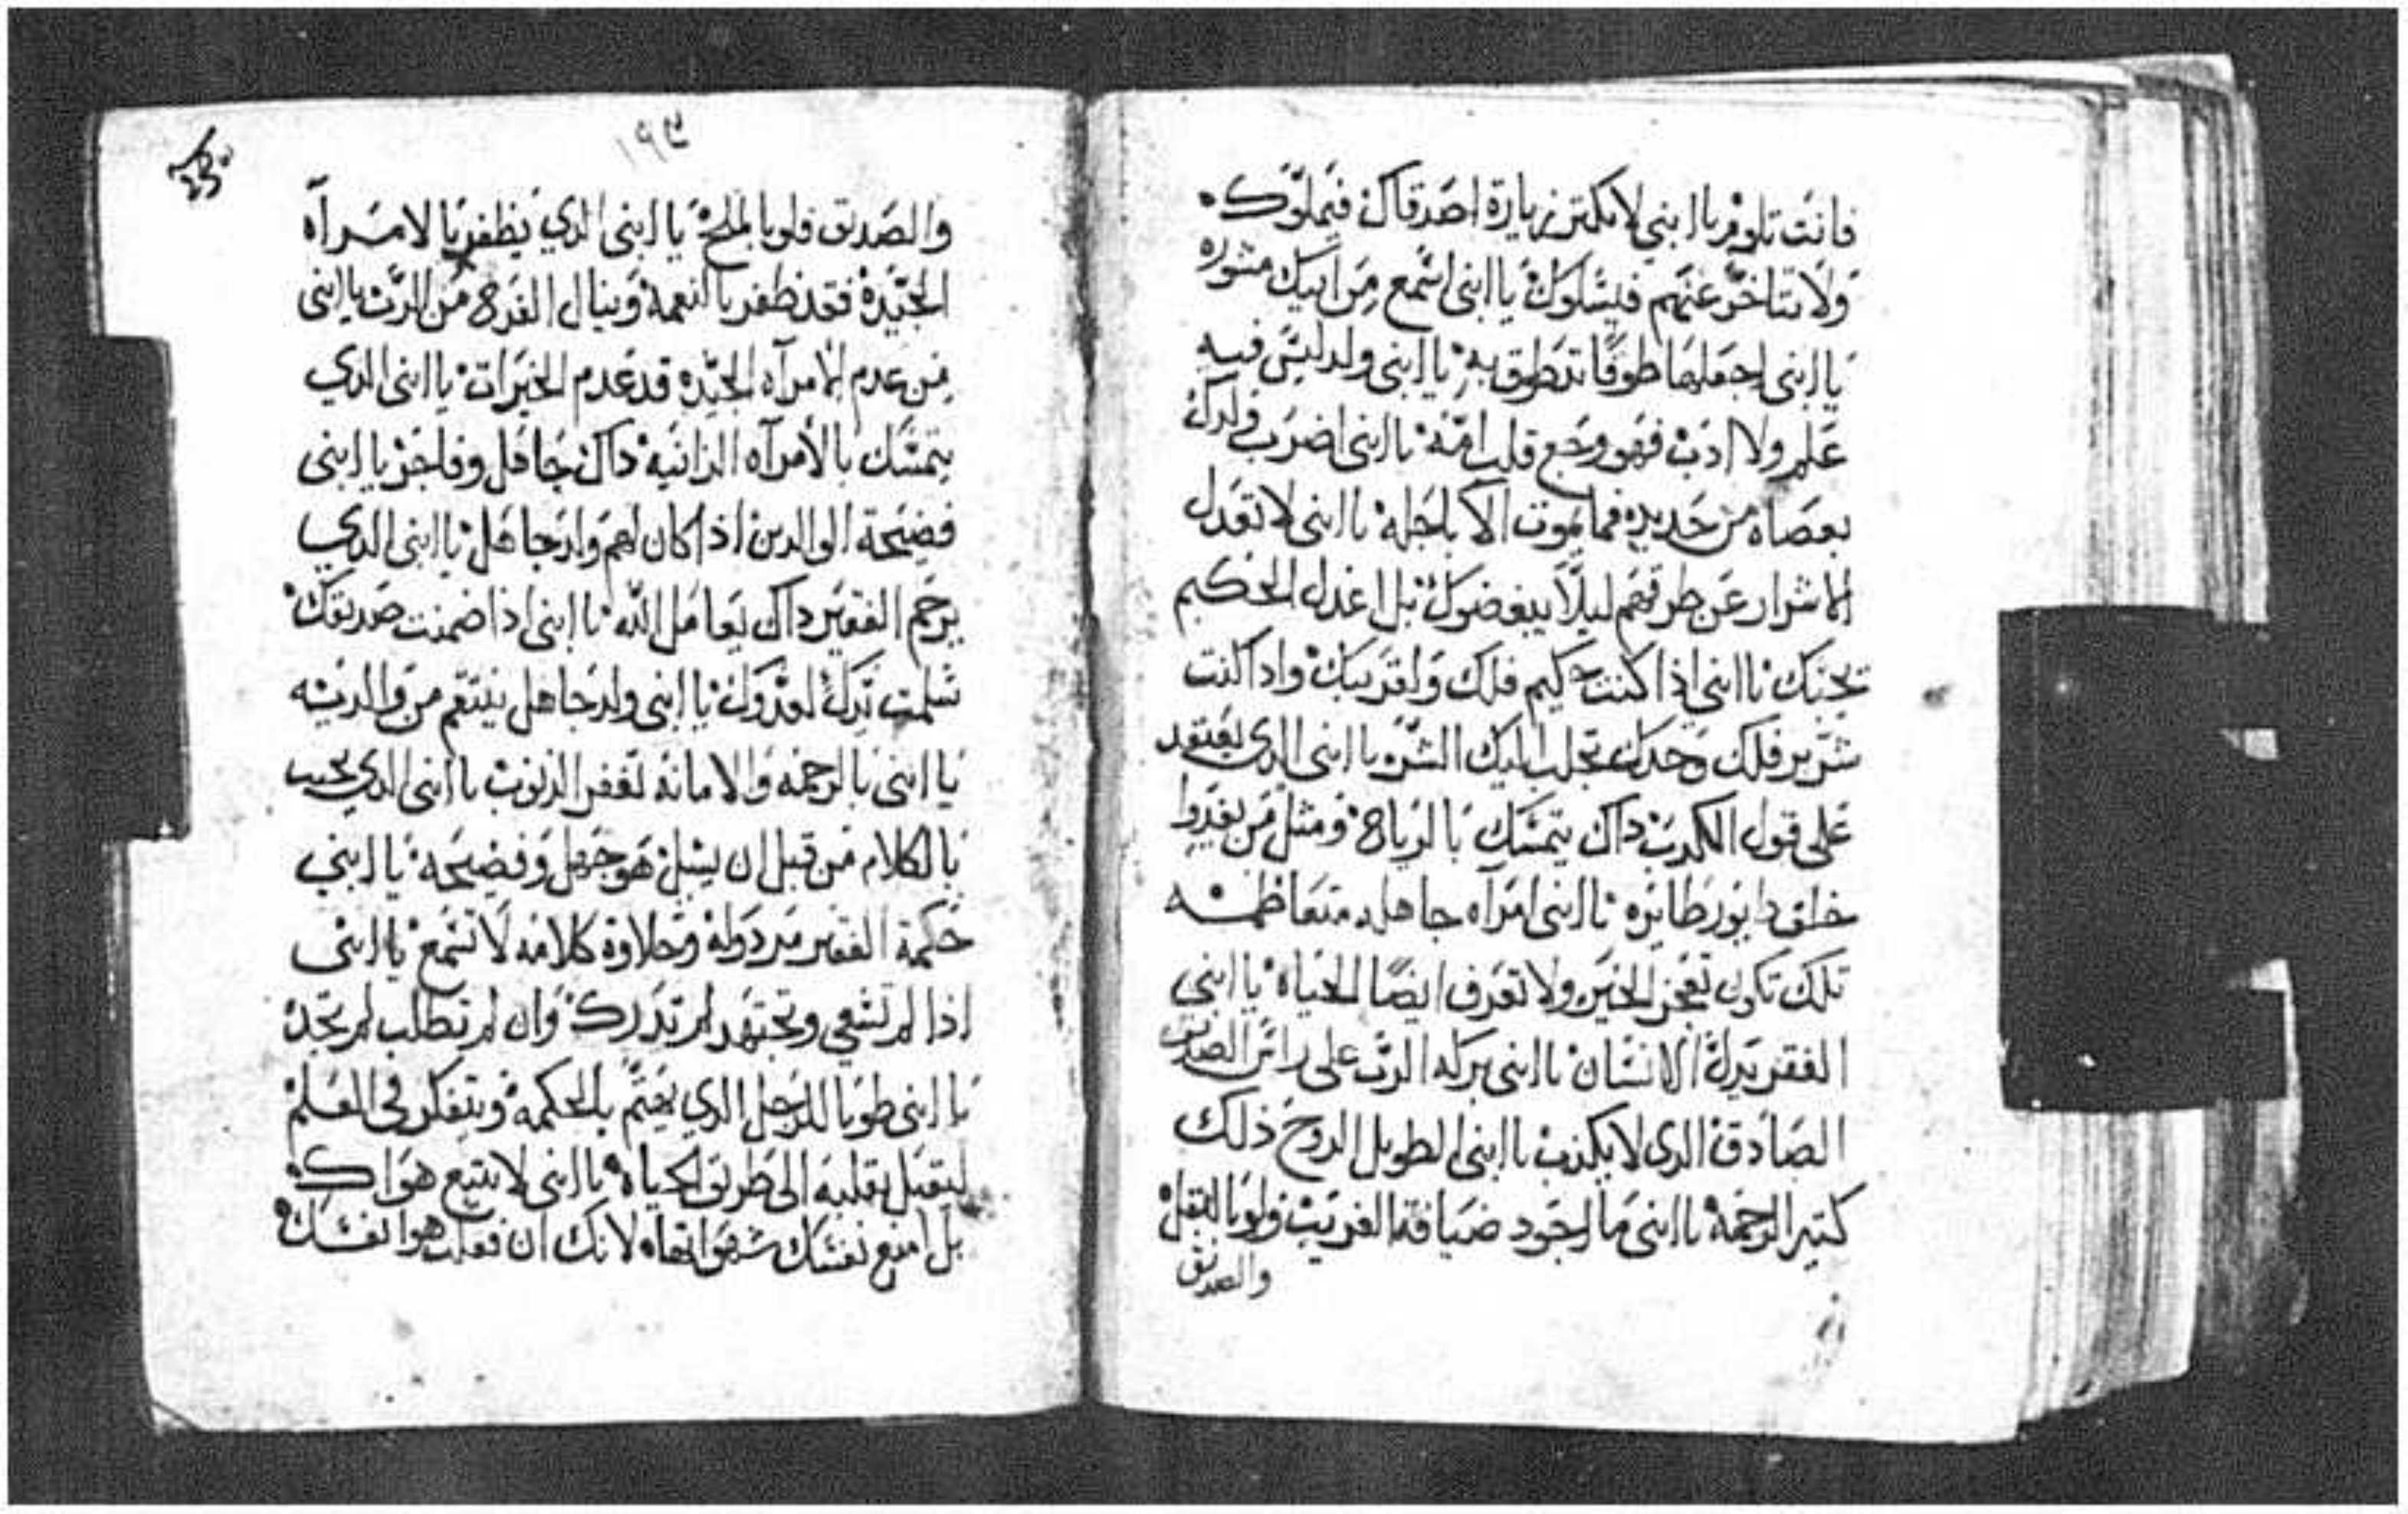 فانت تلوم يا ابني لا تكتر زيارة اصدقاك فيملّوك
ولا تتاخر عنهم فيسلوك يا ابني اسمع من ابيك مشوره
يا ابني اجعلها طوقًا تتطوق به يا ابني ولد ليس فيه
علم ولا ادب فهو وجع قلب امّه يا ابني اضرب ولدك
بعصاه من حديد فما يموت الا باجله يا ابني لا تعدل
الاشرار عن طرقهم ليلًا يبغضوك بل اعدل الحكيم
يحبك يا ابني اذا كنت حكيم فلك ولقريبك واذا كنت
شرير فلك وحدك تجلب اليك الشر يا ابني الدي يعتمد
على قول الكدب داك يتمسك بالرياح ومثل من يعدوا
خلف طيور طايره يا ابني امرآه جاهله متعاظمه
تلك تكون تعجز الخبز ولا تعرف ايضًا الحياه يا ابني
الفقر يدل الانسان يا ابني بركه الرب على راس الصديق
الصادق الدى لا يكذب يا ابني الطويل الروح ذلك
كتير الرحمة يا ابني ما اجود ضيافة الغريب ولو بالبقل
والصديق
١٩٩
والصديق ولو بالملح يا ابني الدي يظفر بالامرآه
الجيّدة فقد ظفر بالنعمه وينال الفرح من الرب يا ابني
من عدم الامرآه الجيّده قد عدم الخيرات يا ابني الدي
يتمسك بالامرآه الزانيه داك جاهل وفاجر يا ابني
فضيحة الوالدين اذا كان لهم ولد جاهل يا ابني الدي
يرحم الفقير داك يعامل الله يا ابني اذا ضمنت صديقك
سلمت يدك لعدوك يا ابني ولد جاهل ينتقم من والديه
يا ابني بالرحمه والامانه تغفر الذنوب يا ابني الدي يجيب
بالكلام من قبل ان يسل هو جهل وفضيحه يا ابني
حكمة الفقير مردوله وحلاوة كلامه لا تسمع يا ابني
اذا لم تسعي وتجتهد لم تدرك وان لم تطلب لم تجد
يا ابني طوبا للرجل الدي يهتم بالحكمه ويتفكر في العلم
ليقبل بقلبه الى طريق الحياة يا ابني لا تتبع هواك
بل امنع نفسك شهواتها لانك ان فعلت هوا نفسك